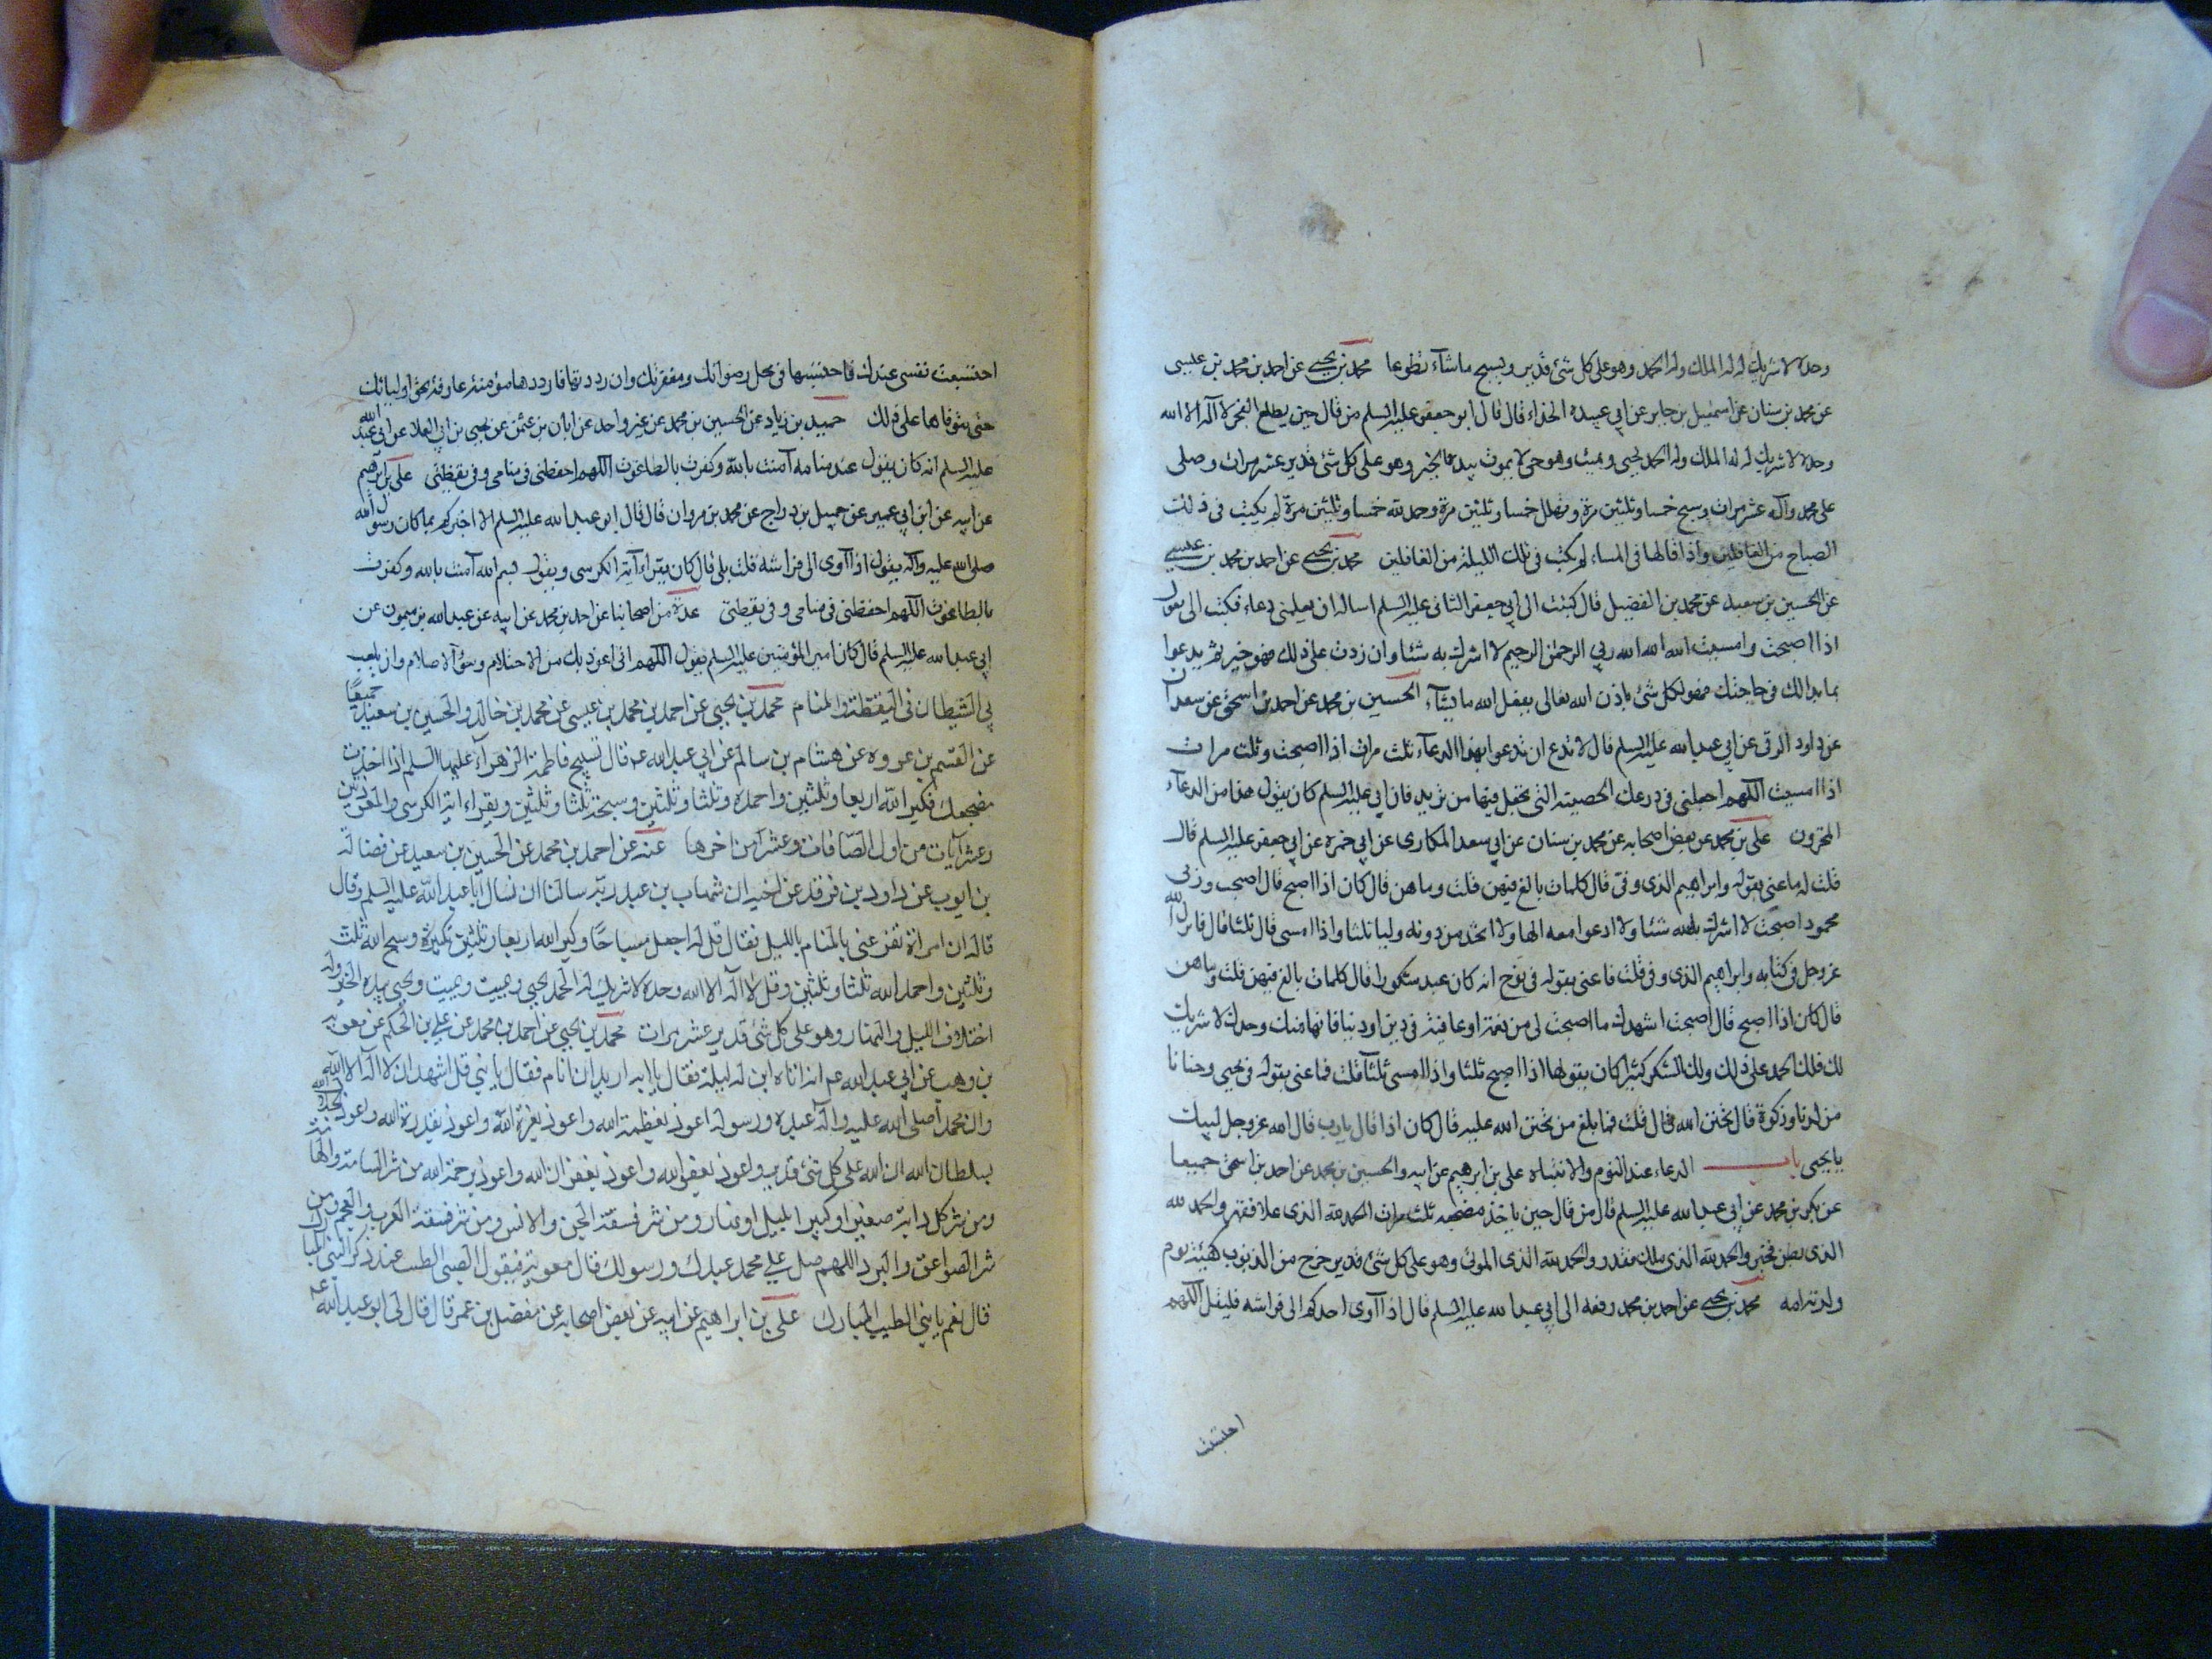 وحده لا شريك له له الملك وله الحمد وهو على كل شئ قدير ويسبح ماشاء تطوعا محمد بن يحيى عن احمد بن محمد بن عيسى
عن محمد بن سنان عن اسمعيل بن جابر عن ابي عبيدة الحذاء قال قال ابو جعفر عليه السلم من قال حين يطلع الفجر لا اله الا الله
وحده لا شريك له له الملك وله الحمد يحيى ويميت وهو حي لا يموت بيده الخير وهو على كل شئ قدير عشر مرات وصلى
على محمد وآله عشر مرات وسبح خمسا وثلثين مرة وهلل خمسا وثلثين مرة وحمد الله خمسا وثلثين مرة لم يكتب فى ذلك
الصباح من الغافلين واذا قالها فى المساء لم يكتب فى تلك الليلة من الغافلين محمد بن يحيى عن احمد بن محمد بن عيسى
عن الحسين بن سعيد عن محمد بن الفضيل قال كتبت الى ابي جعفر الثانى عليه السلم اساله ان يعلمنى دعاء فكتب الى تقول
اذا اصبحت وامسيت الله الله الله ربي الرحمن الرحيم لا اشرك به شئا وان زدت على ذلك فهو خير ثم تدعوا
بما بدالك فى حاجتك فهو لكل شئ باذن الله تعالى يفعل الله ما يشاء الحسين بن محمد عن احمد بن اسحق عن سعدان
عن داود الرقى عن ابي عبد الله عليه السلم قال لا تدع ان تدعوا بهذا الدعاء ثلث مرات اذا اصبحت وثلث مرات
اذا امسيت اللهم اجعلنى فى درعك الحصينة التى تجعل فيها من تريد فان ابي عليه السلم كان يقول هذا من الدعاء
المخزون على بن محمد عن بعض اصحابه عن محمد بن سنان عن ابي سعد المكارى عن ابي حمزة عن ابي جعفر عليه السلم قال
قلت له ما عنى بقوله وابراهيم الذى وفى قال كلمات بالغ فيهن قلت وما هن قال كان اذا اصبح قال اصبحت وربى
محمود اصبحت لا اشرك بالله شئا ولا ادعوا معه الها ولا اتخذ من دونه وليا ثلثا واذا امسى قال ثلثا قال فانزل الله
عز وجل فى كتابه وابراهيم الذى وفى قلت فما عنى بقوله فى نوح انه كان عبد شكورا قال كلمات بالغ فيهن قلت وما هن
قال كان اذا اصبح قال اصبحت اشهدك ما اصبحت لى من نعمة او عافية فى دين او دنيا فانها منك وحدك لا شريك
لك فلك الحمد على ذلك ولك الشكر كثيرا كان يقولها اذا اصبح ثلثا واذا امسى ثلثا قلت فما عنى بقوله فى يحيى وحنانا
من لدنا وزكوة قال تحنن الله قال قلت فما بلغ من تحنن الله عليه قال كان اذا قال يارب قال الله عز وجل لبيك
يا يحيى باب الدعاء عند النوم والانتباه على بن ابرهيم عن ابيه والحسين بن محمد عن احمد بن اسحق جميعا
عن بكر بن محمد عن ابي عبد الله عليه السلم قال من قال حين ياخذ مضجعه ثلث مرات الحمد لله الذى علا فقهر والحمد لله
الذى بطن فخبر والحمد لله الذى ملك فقدر والحمد لله الذى الموتى وهو على كل شئ قدير خرج من الذنوب كهيئة يوم
ولدته امه محمد بن يحيى عن احمد بن محمد رفعه الى ابي عبد الله عليه السلم قال اذا آوى احدكم الى فراشه فليقل اللهم
احتبست
احتبست نفسى عندك فاحتبسها فى محل رضوانك ومغفرتك وان رددتها فارددها مؤمنة عارفة بحق اوليائك
حتى تتوفاها على ذلك حميد بن زياد عن الحسين بن محمد عن غير واحد عن ابان بن عثمن عن يحيى بن ابي العلا عن ابي عبد الله
عليه السلم انه كان يقول عند منامه آمنت بالله وكفرت بالطاغوت اللهم احفظنى فى منامى وفى يقظتى على بن ابرهيم
عن ابيه عن ابن ابي عمير عن جميل بن دراج عن محمد بن مروان قال قال ابو عبد الله عليه السلم الا اخبركم بما كان رسول الله
صلى الله عليه وآله يقول اذا آوى الى فراشه قلت بلى قال كان يقراء آية الكرسى ويقول بسم الله آمنت بالله وكفرت
بالطاغوت اللهم احفظنى فى منامى وفى يقظتى عدة من اصحابنا عن احمد بن محمد عن ابيه عن عبد الله بن ميمون عن
ابي عبد الله عليه السلم قال كان امير المؤمنين عليه السلم يقول اللهم انى اعوذ بك من الاحتلام وسوء الاحلام وان يلعب
بي الشيطان فى اليقظة والمنام محمد بن يحيى عن احمد بن محمد بن عيسى عن محمد بن خالد والحسين بن سعيد جميعا
عن القسم بن عروه عن هشام بن سالم عن ابي عبد الله عم قال تسبيح فاطمة الزهراء عليها السلم اذا اخذت
مضجعك فكبر الله اربعا وثلثين واحمده وثلثا وثلثين وسبحه ثلثا وثلثين ويقراء اية الكرسى والمعوذتين
وعشر آيات من اول الصافات وعشرا من اخرها عنه عن احمد بن محمد عن الحسين بن سعيد عن فضالة
بن ايوب عن داود بن فرقد عن اخيه ان شهاب بن عبد ربه سالنا ان نسال ابا عبد الله عليه السلم وقال
قاله ان امراة تفزعنى بالمنام بالليل فقال قل له اجعل مسباحا وكبر الله اربعا وثلثين تكبيرة وسبح الله ثلث
وثلثين واحمد الله ثلثا وثلثين وقل لا اله الا الله وحده لا شريك له الحمد يحيى ويميت ويميت ويحيى بيده الخير وله
اختلاف الليل والنهار وهو على كل شئ قدير عشر مرات محمد بن يحيى عن احمد بن محمد عن علي بن الحكم عن معويه
بن وهب عن ابي عبد الله عم انه اتاه ابن له ليلة فقال يا ابه اريد ان انام فقال يا بني قل اشهد ان لا اله الا الله
وان محمدا صلى الله عليه واله عبده ورسوله اعوذ بعظمة الله واعوذ بعزة الله واعوذ بقدرة الله واعوذ بجلال الله
بسلطان الله ان الله على كل شئ قدير واعوذ بعفو الله واعوذ بغفران الله واعوذ برحمة الله من شر السامة والهامة
ومن شر كل دابة صغير او كبير ابليل او نهار ومن شر فسقة الجن والانس ومن شر فسقة العرب والعجم ومن
شر الصواعق والبرد اللهم صل علي محمد عبدك ورسولك قال معوية فيقول الصبى الطيب عند ذكر النبى المبارك
قال نعم يا بني الطيب المبارك على بن ابراهيم عن ابيه عن بعض اصحابه عن مفضل بن عمر قال قال لى ابو عبد الله عم